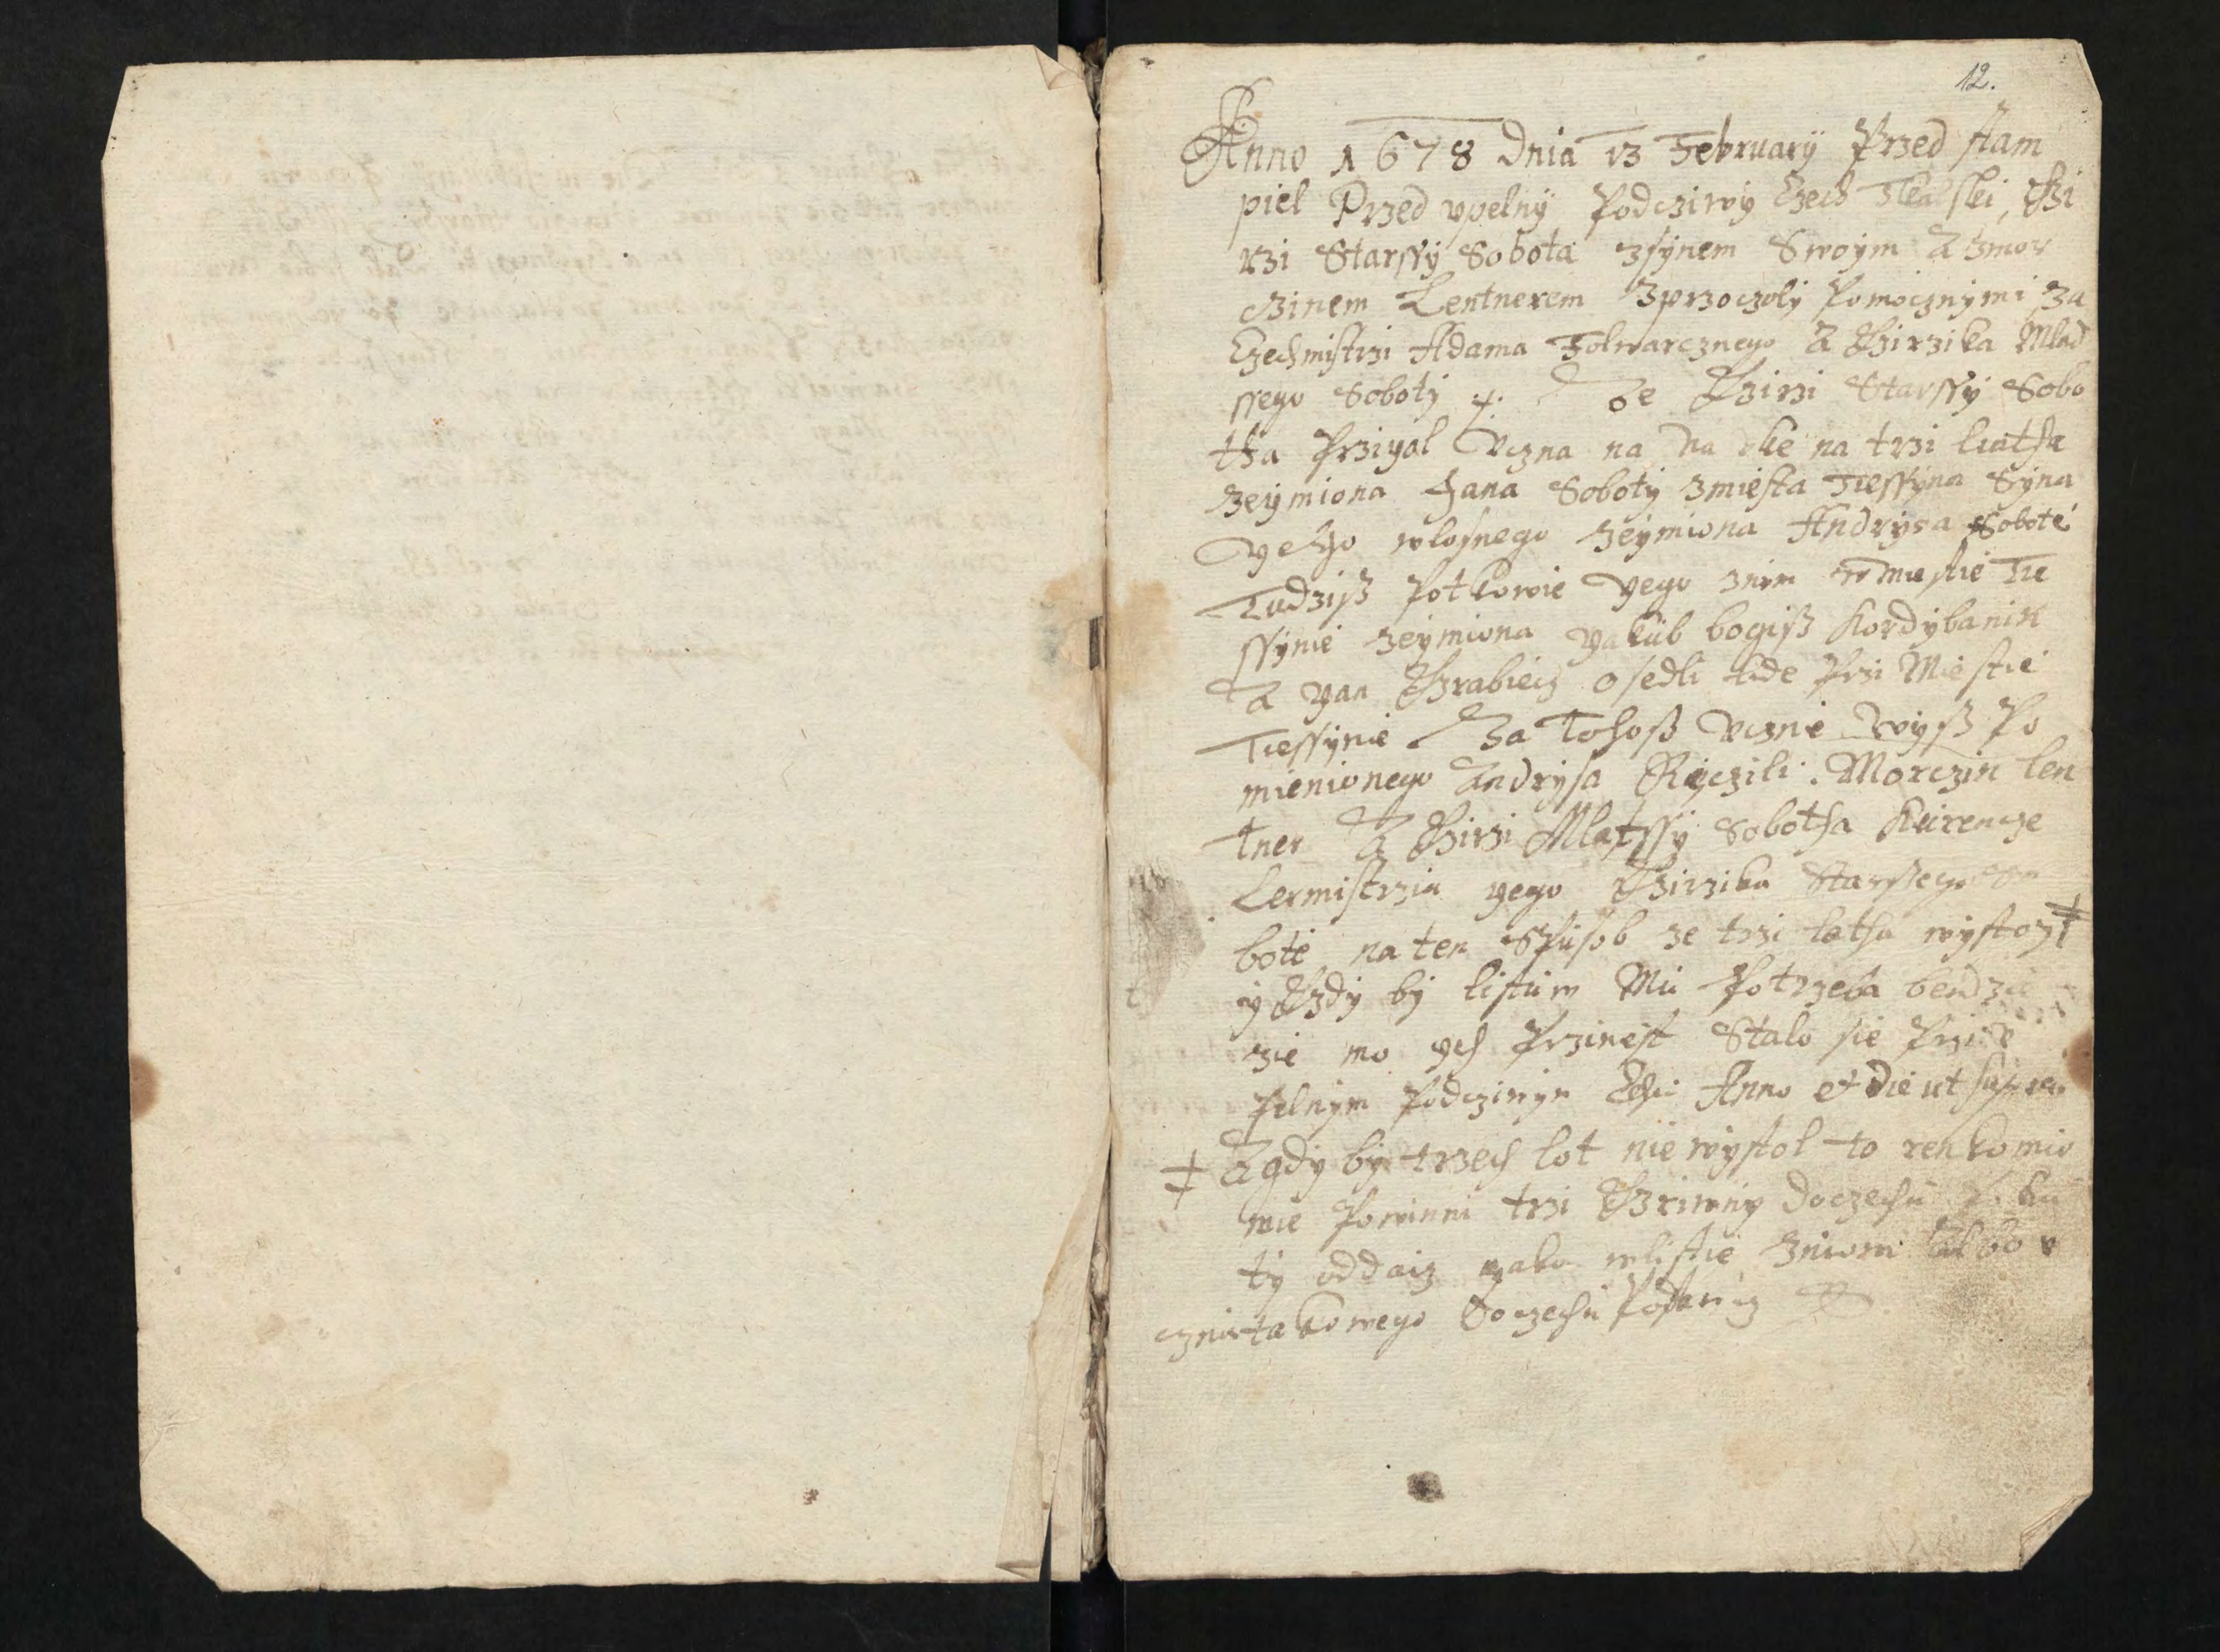 12.
Anno 1678 dnia 13 February Przed stam
piel Przed vpelny Podcziwy Czech Tkalski,
rzi Starssy Sobota zsynem Swoym A zmor
czinem Lentnerem zprzoczoly Pomocznymi za
Czechmistrzi Adama Folwarcznego A Jirzika Mlad
ssego Soboty Ze Jirzi Starssy Sobo
tha Przigal Vczna na Na uke na trzi liatha
zeymiona Jana Soboty zmiesta Tiessyna Syna
geho wlosnego zeymiona Andrysa Sobote
Tudziß Potkowie yego znim w miestie Tie
ssynie zeymiona yakub bogiß Kordybanik
A yan Hrabiecz osedli tude Przi Miestie
Tiessynie Za Tohoß Vcznie wyß Po
mienionego Andrysa Ryczili Morczin len
tner A Jirzi Mlatssy Sobotha
Lermistrzia yego Jirzika Starssego So
bote na ten Spusob ze trzi latha wystogi
y kdy by listum Mu Potrzeba bendzie
zie mo ych Przinest Stalo sie Przi v
pelnym Podcziwym Anno et die ut supra
A gdy by trzech lot nie wystol to renkomio
wie Powinni trzi Hrziwny do czechu
ty oddacz yako wlistie
cznia takowego do czechu Postawicz